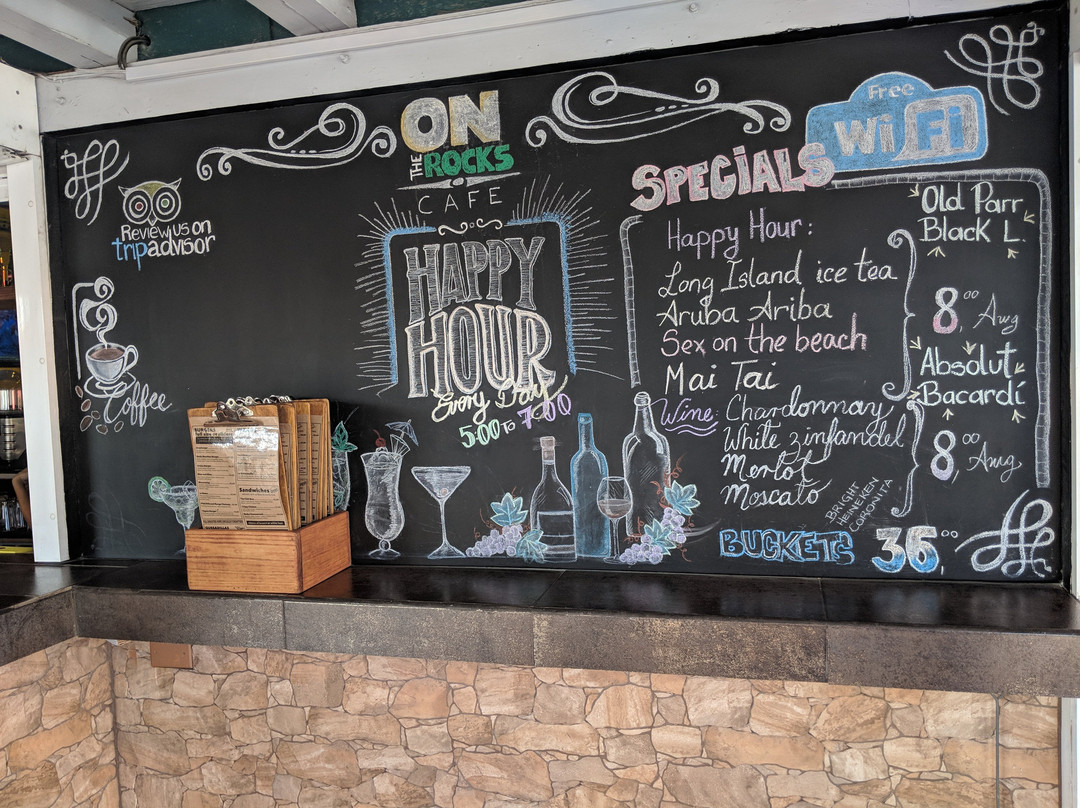 ON
THE ROCKS
CAFE
Free
WiFi
Review us on
tripadvisor
Coffee
HAPPY
HOUR
Every Day
5:00 TO 7:00
SPECIALS
Happy Hour:
Long Island ice tea
Aruba Ariba
Sex on the beach
Mai Tai
Wine: Chardonnay
White zinfandel
Merlot
Moscato
Old Parr
Black L.
8,00 Awg
Absolut
Bacardí
8,00 Awg
BRIGHT
HEINEKEN
CORONITA
BUCKETS 36,00
Sandwiches